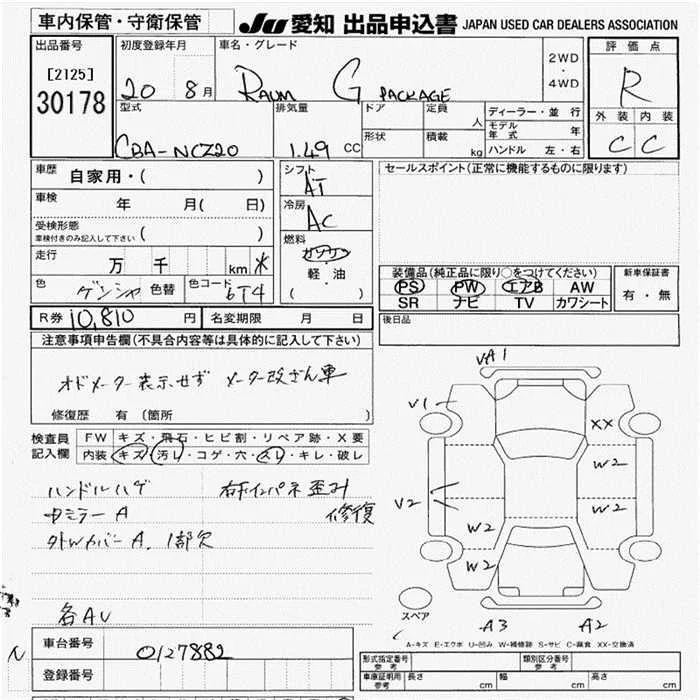 車内保管・守衛保管 JU 愛知 出品申込書 JAPAN USED CAR DEALERS ASSOCIATION
出品番号 初度登録年月 車名・グレード 評価点
[2125]
30178
20 8月 RAUM G PACKAGE 2WD・4WD R
型式 排気量 ドア 定員 人 ディーラー・並行 外装 内装
モデル年式 年
CBA-NCZ20 1.49 CC 形状 積載 kg ハンドル 左・右 C C
車歴 自家用・( ) シフト AT セールスポイント(正常に機能するものに限ります)
車検 年 月( 日) 冷房 AC
受検形態
車検付きのみ記入して下さい ( )
燃料 ガソリン
軽・油
( )
走行 万 千 km
装備品(純正品に限り○をつけてください) 新車保証書
PS PW エアB AW 有・無
SR ナビ TV カワシート
色 ゲンシャ 色替 色コード 6T4
R券 10,810 円 名変期限 月 日 後日品
注意事項申告欄(不具合内容等は具体的に記入して下さい)
オドメーター表示せず メーター改ざん車
修復歴 有(箇所 )
検査員 FW キズ・飛石・ヒビ割・リペア跡・X要
記入欄 内装 キズ・汚レ・コゲ・穴・スレ・キレ・破レ
ハンドルハゲ 右インパネ歪み
ミラーA 修復
カバーA. 1部欠
各AU
VA1
V1
XX
W2
V2
W2
W2
W2
スペア
A3 A2
A-キズ E-エクボ U-凹み W-補修跡 S-サビ C-腐食 XX-交換済
車台番号 0127882
登録番号
形式指定番号 参考 類別区分番号 参考
車庫証明用 参考 長さ cm 幅 cm 高さ cm